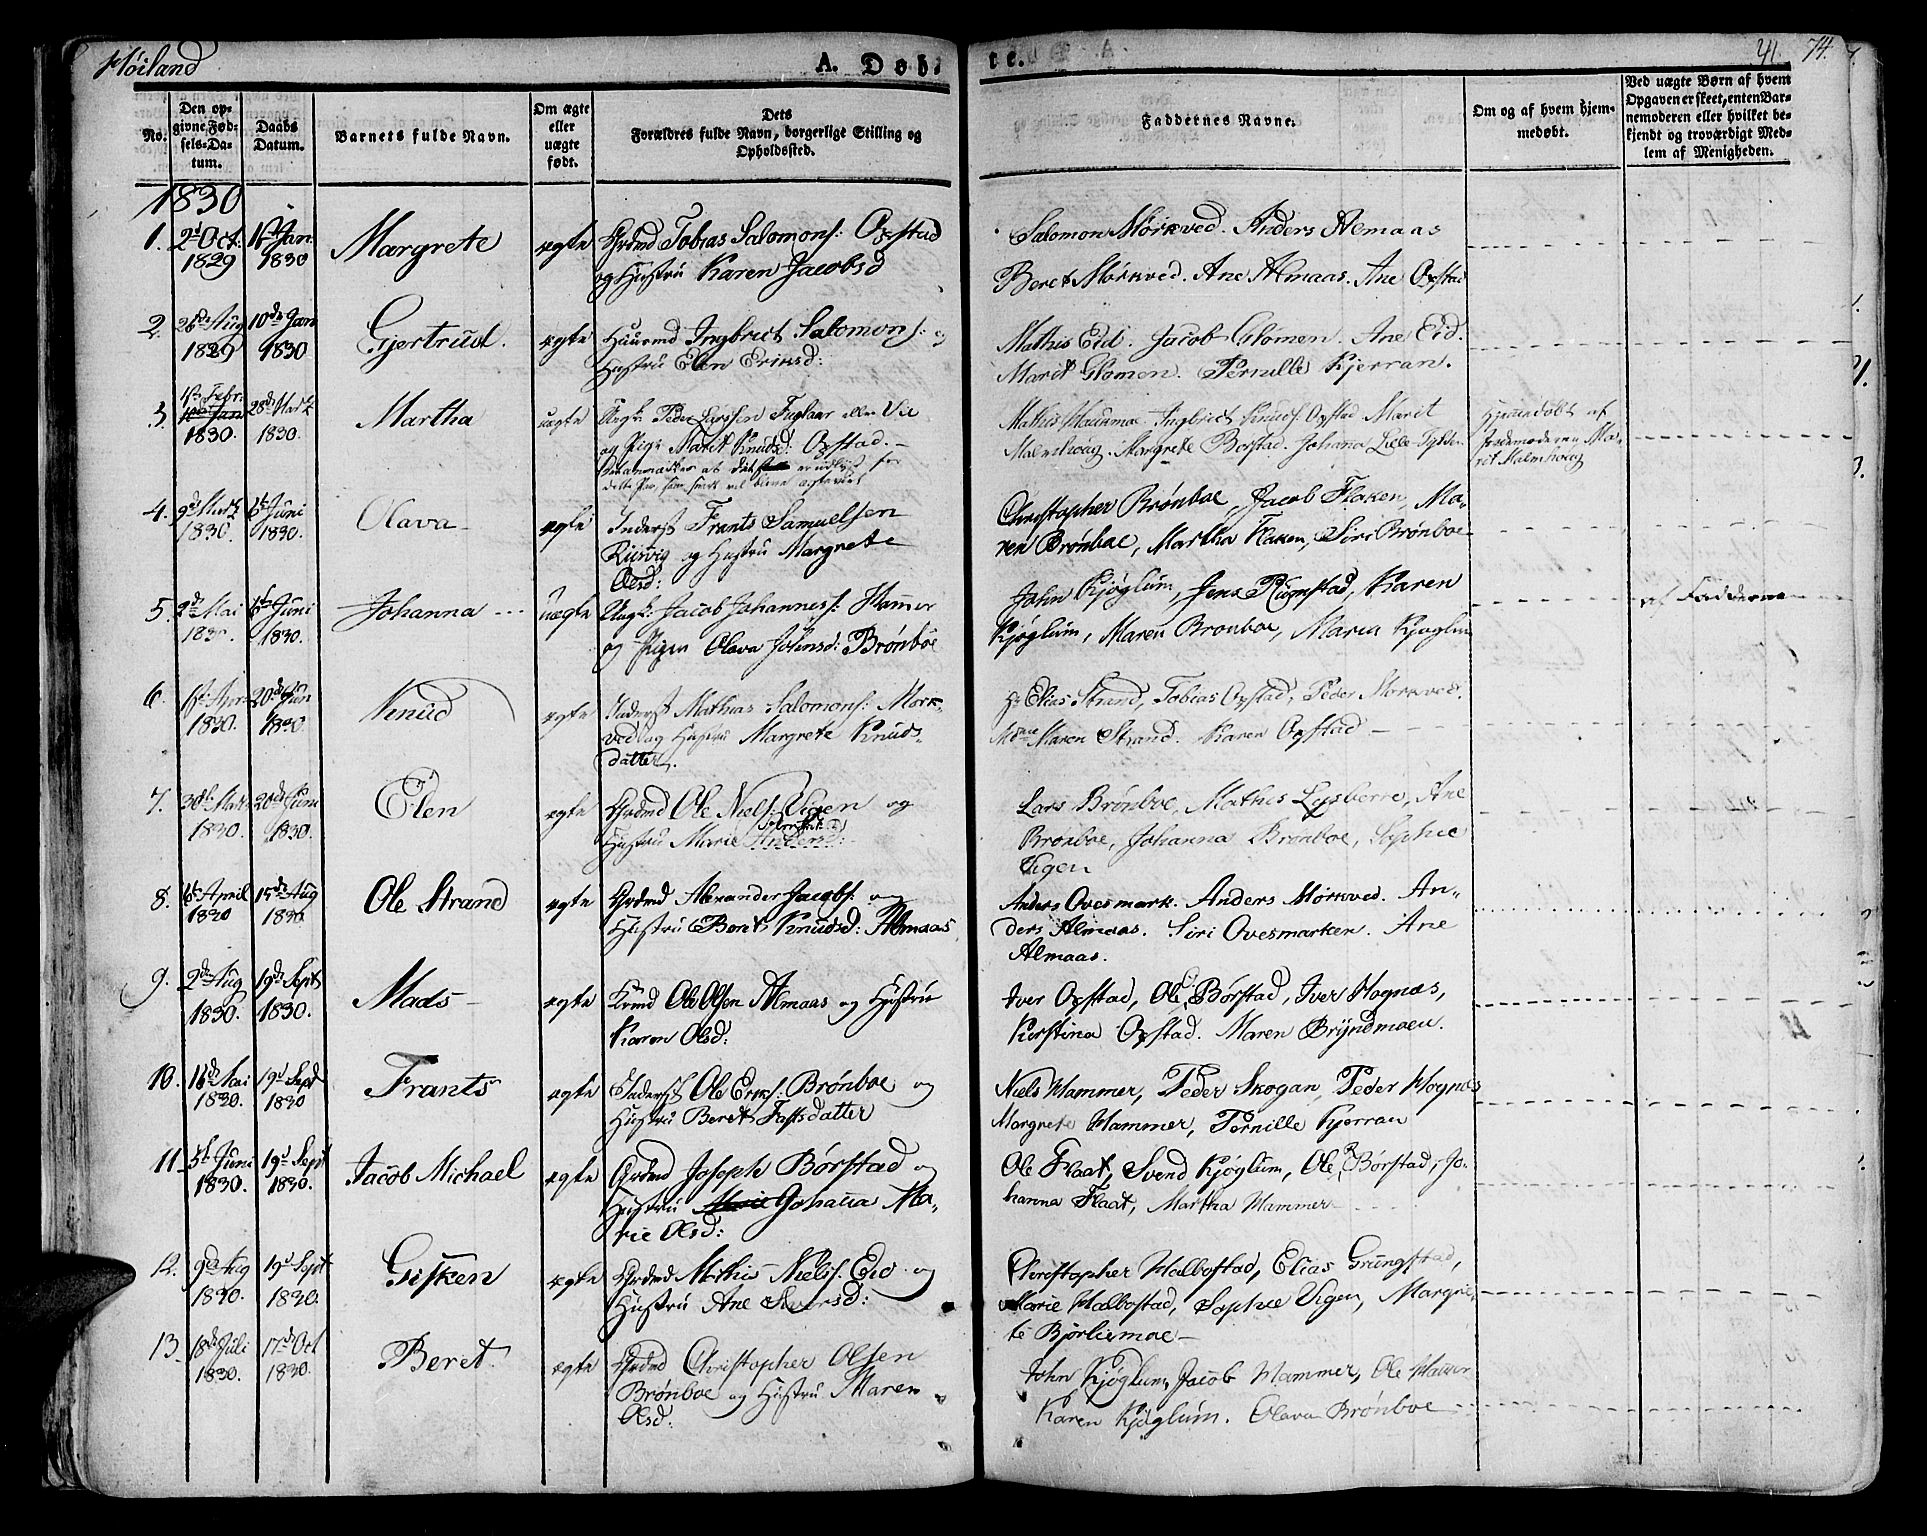 Høiland
A. Døbte.
41. 74.
No.
Den opgivne Fødsels-Datum.
Daabs Datum.
Barnets fulde Navn.
Om ægte eller uægte født.
Dets Forældres fulde Navn, borgerlige Stilling og Opholdssted.
Faddernes Navne.
Om og af hvem hjemmedøbt.
Ved uægte Børn af hvem Opgaven er skeet, enten Barnemoderen eller hvilket bekjendt og troværdigt Medlem af Menigheden.
1830
1. 2d Oct: 1829
Jan: 1830
Margrete
ægte
Tobias Salomons: Opstad
og Hustru Karen Jacobsd
Salomon Mørkved. Anders Almaas
Beret Mørkved. Ane Almaas. Ane Opstad
2. 28de Aug 1829
10de Jan 1830
Gjertrud.
ægte
Huusmd Ingbrict Salomons: og
Hustru Elen Eriksd:
Mathis Eid. Jacob Glømen. Ane Eid.
Marit Glømen. Pernille Kjerran.
3. Febr. 1830.
28de Martz 1830.
Martha
uægte
Ungk: Peder Larssen Fuglaar eller Vie
og Pige Marit Knudsd: Opstad.
Ingbrict Knuds: Opstad. Marit
Malmhoug. Margrete Borstad. Johana Lille-
Hjemmedøbt af
Jordemoderen Ma-
rit Malmhoug
4. 9de Martz 1830.
6te Juni 1830.
Olava
ægte
Inderst Frants Samuelsen
og Hustru Margrete
Olsd:
Christopher Brønboe, Jacob Flaken, Ma-
ren Brønboe, Martha Flaken, Siri Brønboe
5. 2d Mai 1830.
6te Juni 1830.
Johanna
uægte
Ungk: Jacob Johanness: Hammer
og Pigen Olava Johnsd: Brønboe
John Kjøglum, Jens Rumstad, Karen
Kjøglum, Maren Bronboe, Maria Kjøglum
af Fadderne
6. April 1830.
20de Jun 1830
Knud
ægte
Inderst Mathias Salomons: Mørk-
ved og Hustru Margrete Knuds-
datter.
Hr Elias Strand, Tobias Opstad, Peder Mørkved.
Maren Strand. Karen Opstad
7. 30te 1830.
20de Juni 1830.
Elen
ægte
Ole Niels: Vigen og
Hustru Marie
Lars Brønboe, Mathis Lysberre, Ane
Brønboe, Johanna Brønboe, Sophie
Vigen
8. 6te April 1830
15de Aug 1830.
Ole Strand
ægte
Alexander Jacobs: og
Hustru Beret Knudsd: Almaas
Anders Ovesmark. Anders Mørkved. An-
ders Almaas. Siri Ovesmarken. Ane
Almaas.
9. 2den Aug 1830.
19de Sept 1830.
Mads
ægte
Ole Olsen Almaas og Hustru
Karen Olsd:
Iver Opstad, Ole Børstad, Iver Hognæs,
Kirstina Opstad. Maren Bryndmoen.
10. 16de Mai 1830.
19d Sept 1830
Frants
ægte
Inderst Ole Eriks: Brønboe og
Hustru Beret
Niels Hammer, Peder Skogan, Peder Hognæs
Margrete Hammer, Pernille Kjerran
11. 5te Juni 1830.
19d Sept 1830.
Jacob Michael
ægte
Joseph Børstad og
Hustru Johana Ma-
rie Olsd:
Ole Flaat, Svend Kjøglum, Ole Børstad, Jo-
hanna Flaat, Martha Hammer
12. 9de Aug 1830.
19d Sept 1830.
Gisken
ægte
Mathis Niels: Eid og
Hustru Ane Siversd:
Christopher Halbostad, Elias Grungstad,
Marie Halbostad, Sophie Vigen, Margre-
te Bjørliemoe
13. 18de Juli 1830.
17de Oct 1830.
Beret
ægte
Christopher Olsen
Brønboe og Hustru Maren
Olsd:
John Kjøglum, Jacob Hammer, Ole
Karen Kjøglum. Olava Brønboe